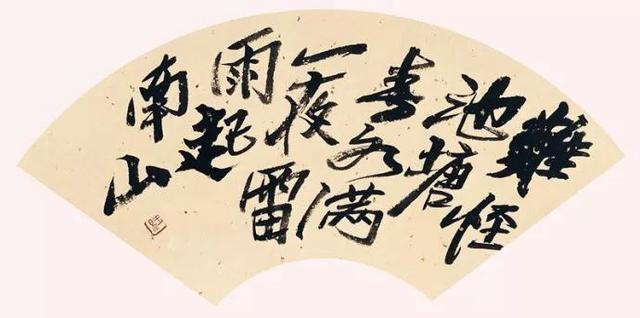 難怪
池塘
春水满
一夜雷
雨起
南山